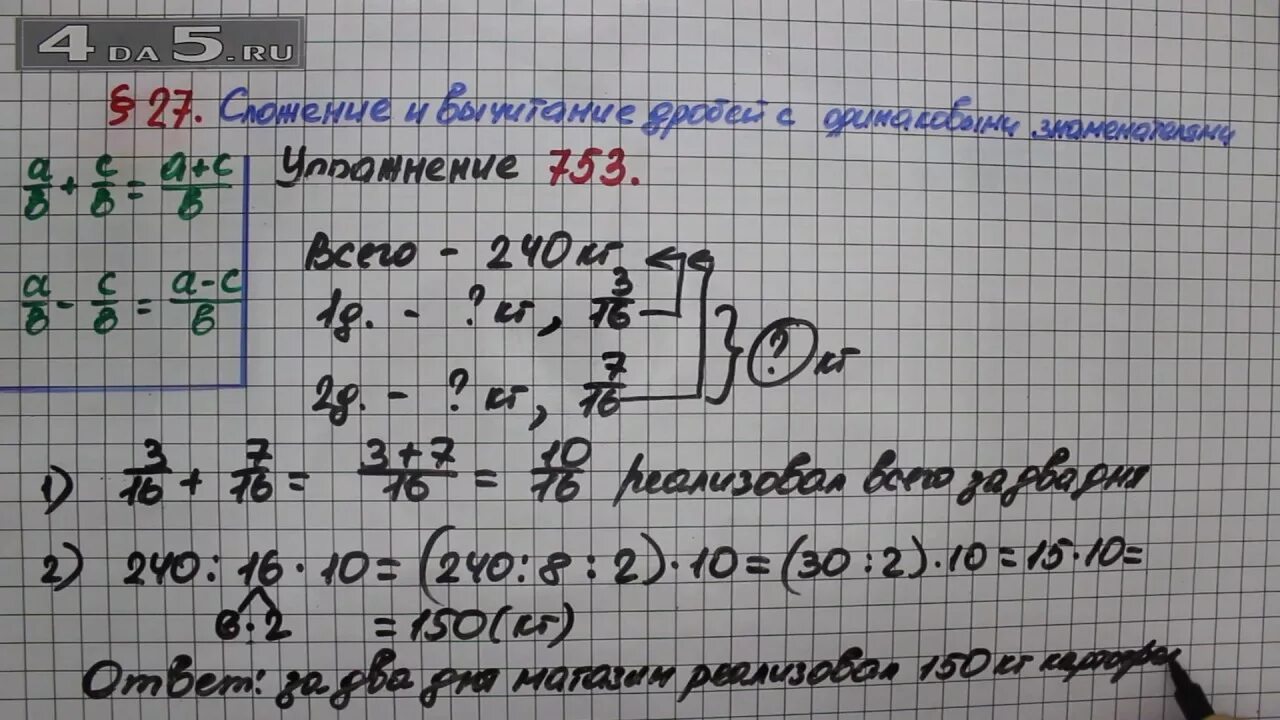 4 DA 5.RU
§ 27. Сложение и вычитание дробей с одинаковыми знаменателями
a/в + c/в = a+c/в
a/в - c/в = a-c/в
Упражнение 753.
Всего - 240 кг
1д. - ? кг, 3/16
2д. - ? кг, 7/16
? кг
1) 3/16 + 7/16 = 3+7/16 = 10/16 реализовал всего за два дня
2) 240 : 16 · 10 = (240 : 8 : 2) · 10 = (30 : 2) · 10 = 15 · 10 =
8·2 = 150 (кг)
Ответ: за два дня магазин реализовал 150 кг